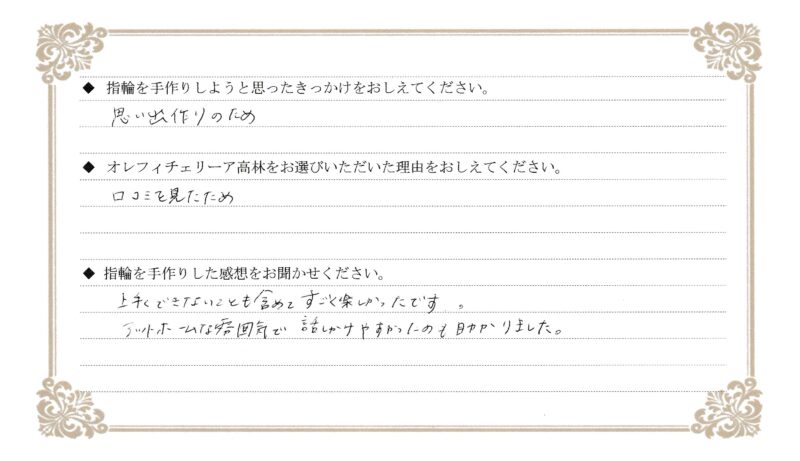 ◆ 指輪を手作りしようと思ったきっかけをおしえてください。
思い出作りのため
◆ オレフィチェリーア高林をお選びいただいた理由をおしえてください。
口コミを見たため
◆ 指輪を手作りした感想をお聞かせください。
上手くできないことも含めてすごく楽しかったです。
アットホームな雰囲気で 話しかけやすかったのも助かりました。